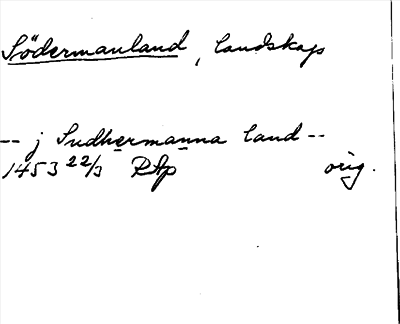 Södermanland, landskap
-- j Sudhermanna land --
1453 22/3 RAp orig.